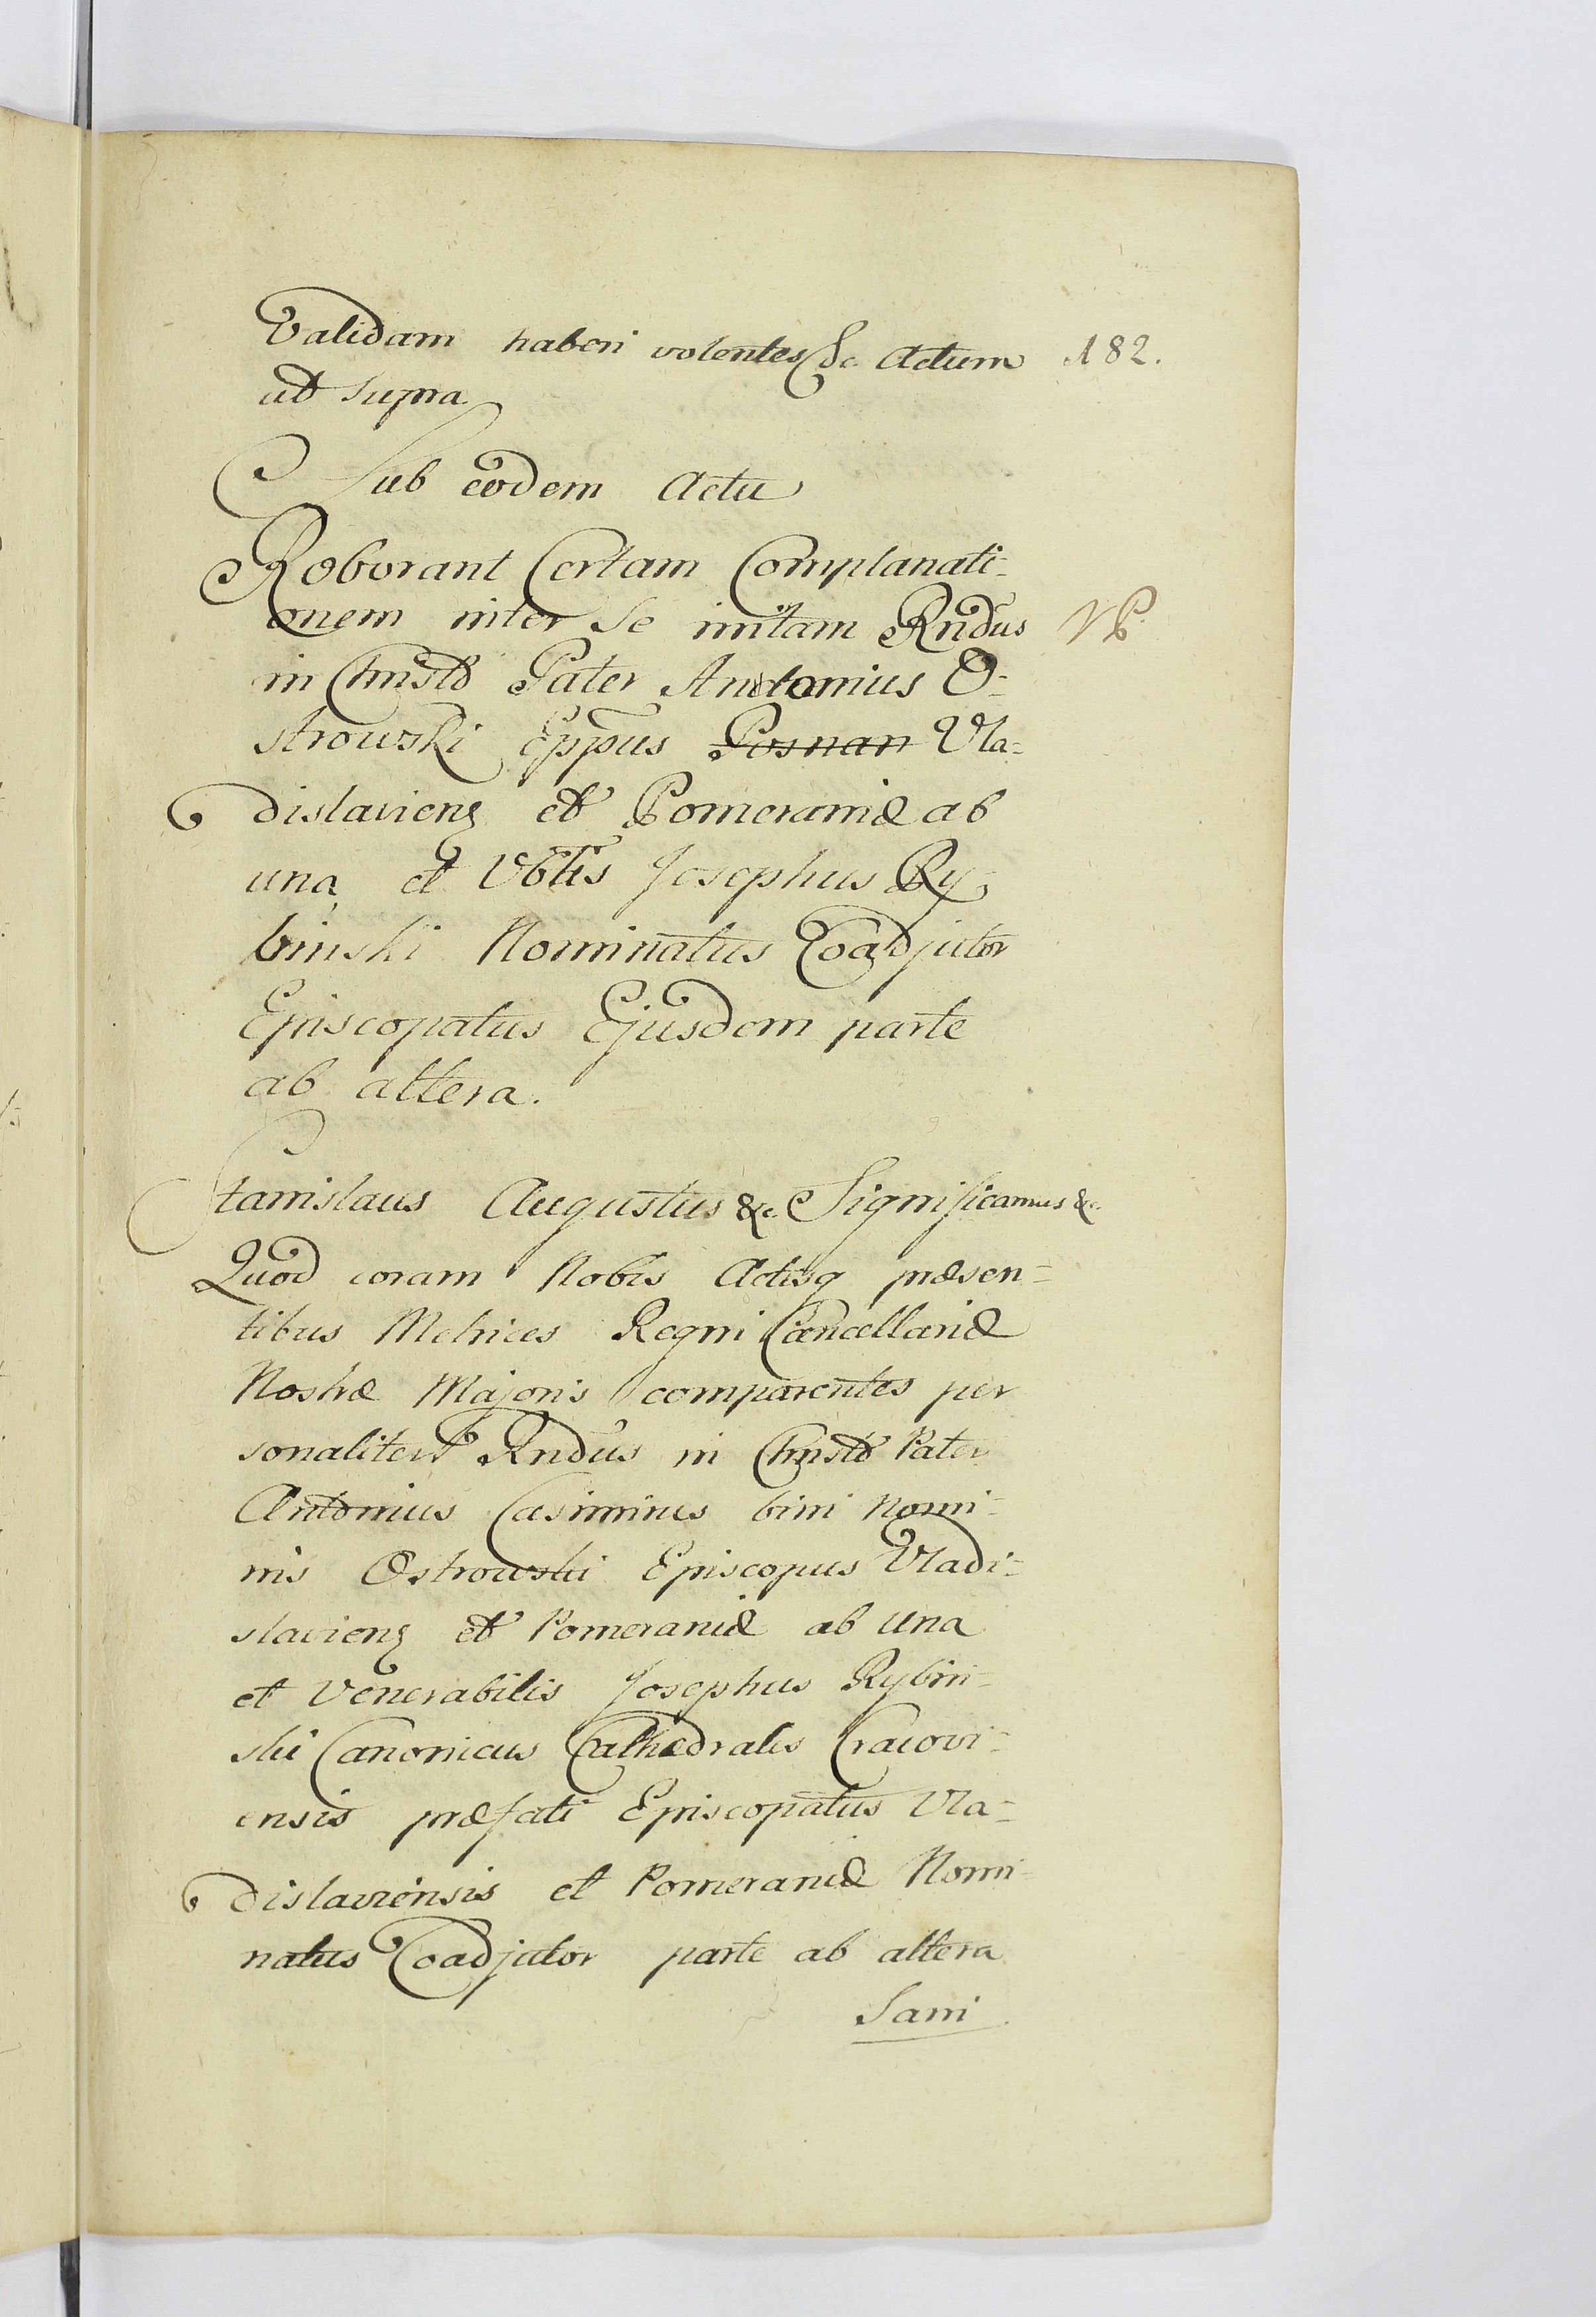 Validam haberi volentes &c. Actum 182.
ut Supra
Sub eodem Actu
Roborant Certam Complanati=
onem inter Se initam Rndus
in Christo Pater Antonius O=
strowski Eppus Posnan Vla=
dislaviens et Pomeraniæ ab
una et Vblis Josephus Ry=
binski Nominatus Coadjutor
Episcopatus Ejusdem parte
ab altera.
Stanislaus Augustus &c. Significamus &c.
Quod coram Nobis Actisq præsen=
tibus Metrices Regni Cancellariæ
Nostræ Majoris comparentes per
sonaliter Rndus in Christo Pater
Antonius Casimirus bini Nomi=
nis Ostrowski Episcopus Vladi=
slaviens et Pomeraniæ ab una
et Venerabilis Josephus Rybin=
ski Canonicus Cathedralis Cracovi=
ensis præfati Episcopatus Vla=
dislaviensis et Pomeraniæ Nomi=
natus Coadjutor parte ab altera
Sani